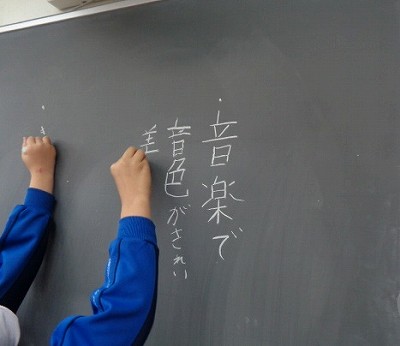 ・音楽で
音色がきれい